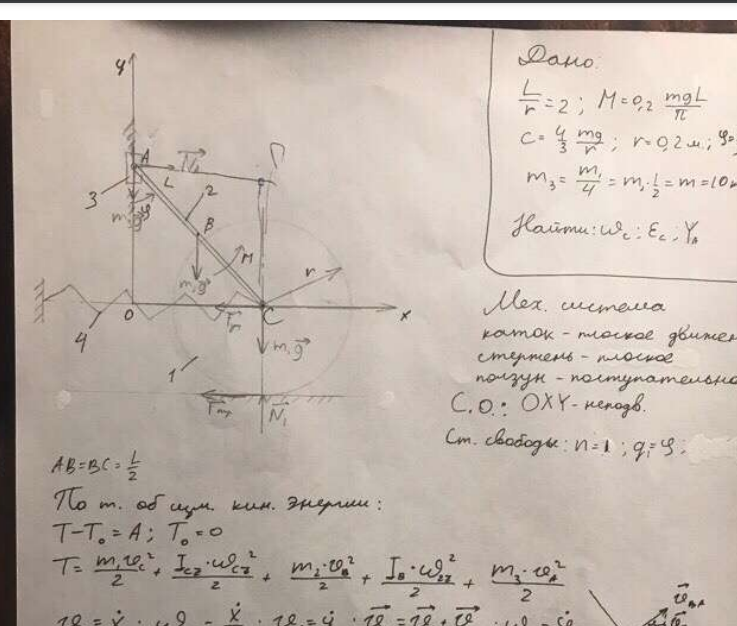 y
A
N₄
L
3
2
m₃g
φ
B
M
m₂g
r
0
Fп
C
x
4
m₁g
1
Fтр
N₁
Дано:
L/r = 2 ; M = 0,2 mgL/π
C = 4/3 mg/r ; r = 0,2 м.; φ=
m₃ = m₁/4 = m₂·1/2 = m = 10
Найти: ω_C ; ε_C ; Y_A
Мех. система
каток - плоское движен
стержень - плоское
ползун - поступательно
С.О.: OXY - неподв.
Ст. свободы: n=1 ; q₁=φ ;
AB=BC= L/2
По т. об изм. кин. энергии:
T-T₀ = A ; T₀ = 0
T = m₁v_C²/2 + I_CZ·ω_CZ²/2 + m₂·v_B²/2 + I_B·ω_2Z²/2 + m₃·v_A²/2
v_BA